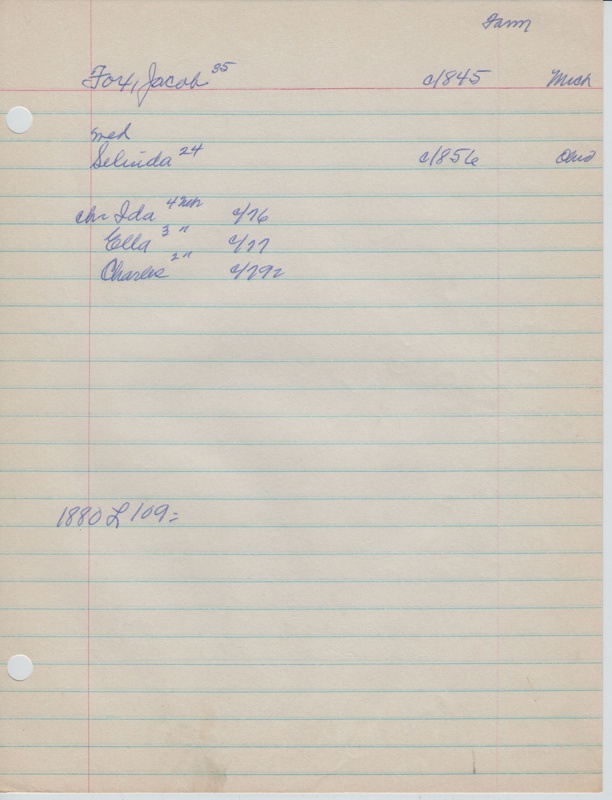 Farm
Fox, Jacob 35 c/1845 Mich
med
Selinda 24 c/1856 Ohio
chr Ida 4 Mich c/76
Ella 3 " c/77
Charles 2 " c/79
1880 L 109=